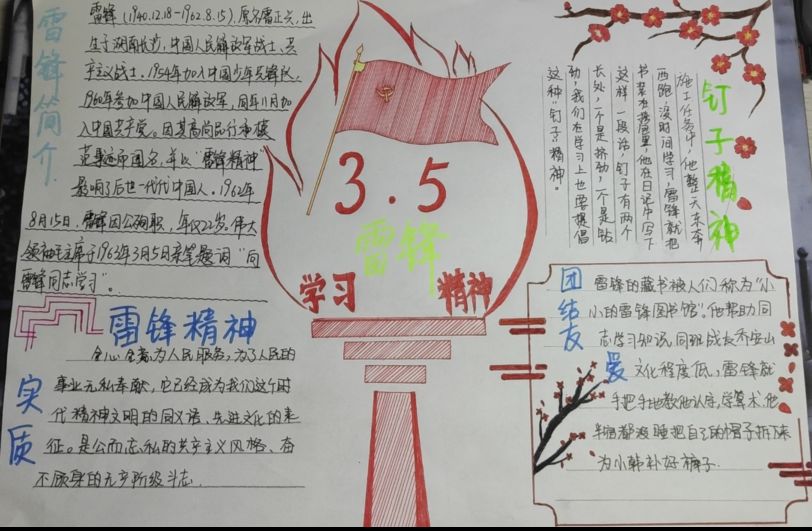 雷锋简介
雷锋(1940.12.18-1962.8.15),原名雷正兴,出
生于湖南长沙,中国人民解放军战士、共
产主义战士,1954年加入中国少年先锋队,
1960年参加中国人民解放军,同年11月加
入中国共产党。因其高尚品行
影响了后世一代代中国人。1962年
8月15日,雷锋因公殉职,年仅22岁。伟大
领袖毛主席于1963年3月5日亲笔题词"向
雷锋同志学习"。
3.5
雷锋
学习
精神
钉子精神
施工任务中,他整天东奔
西跑,没时间学习,雷锋就把
书装在挎包里,他在日记中写下
这样一段话,钉子有两个
长处,一个是挤劲,一个是钻
劲,我们在学习上也要提倡
这种"钉子"精神。
雷锋精神
实质
全心全意为人民服务,为了人民的
事业无私奉献,它已经成为我们这个时
代精神文明的同义语、先进文化的表
征。是公而忘私的共产主义风格、奋
不顾身的无产阶级斗志
团结友爱
雷锋的藏书被人们称为"小
小的雷锋图书馆"。他帮助同
志学习知识,同班战友乔安山
文化程度低,雷锋就
手把手地教他认字,学算术,他
把自己的帽子拆下来
为小韩补好裤子.